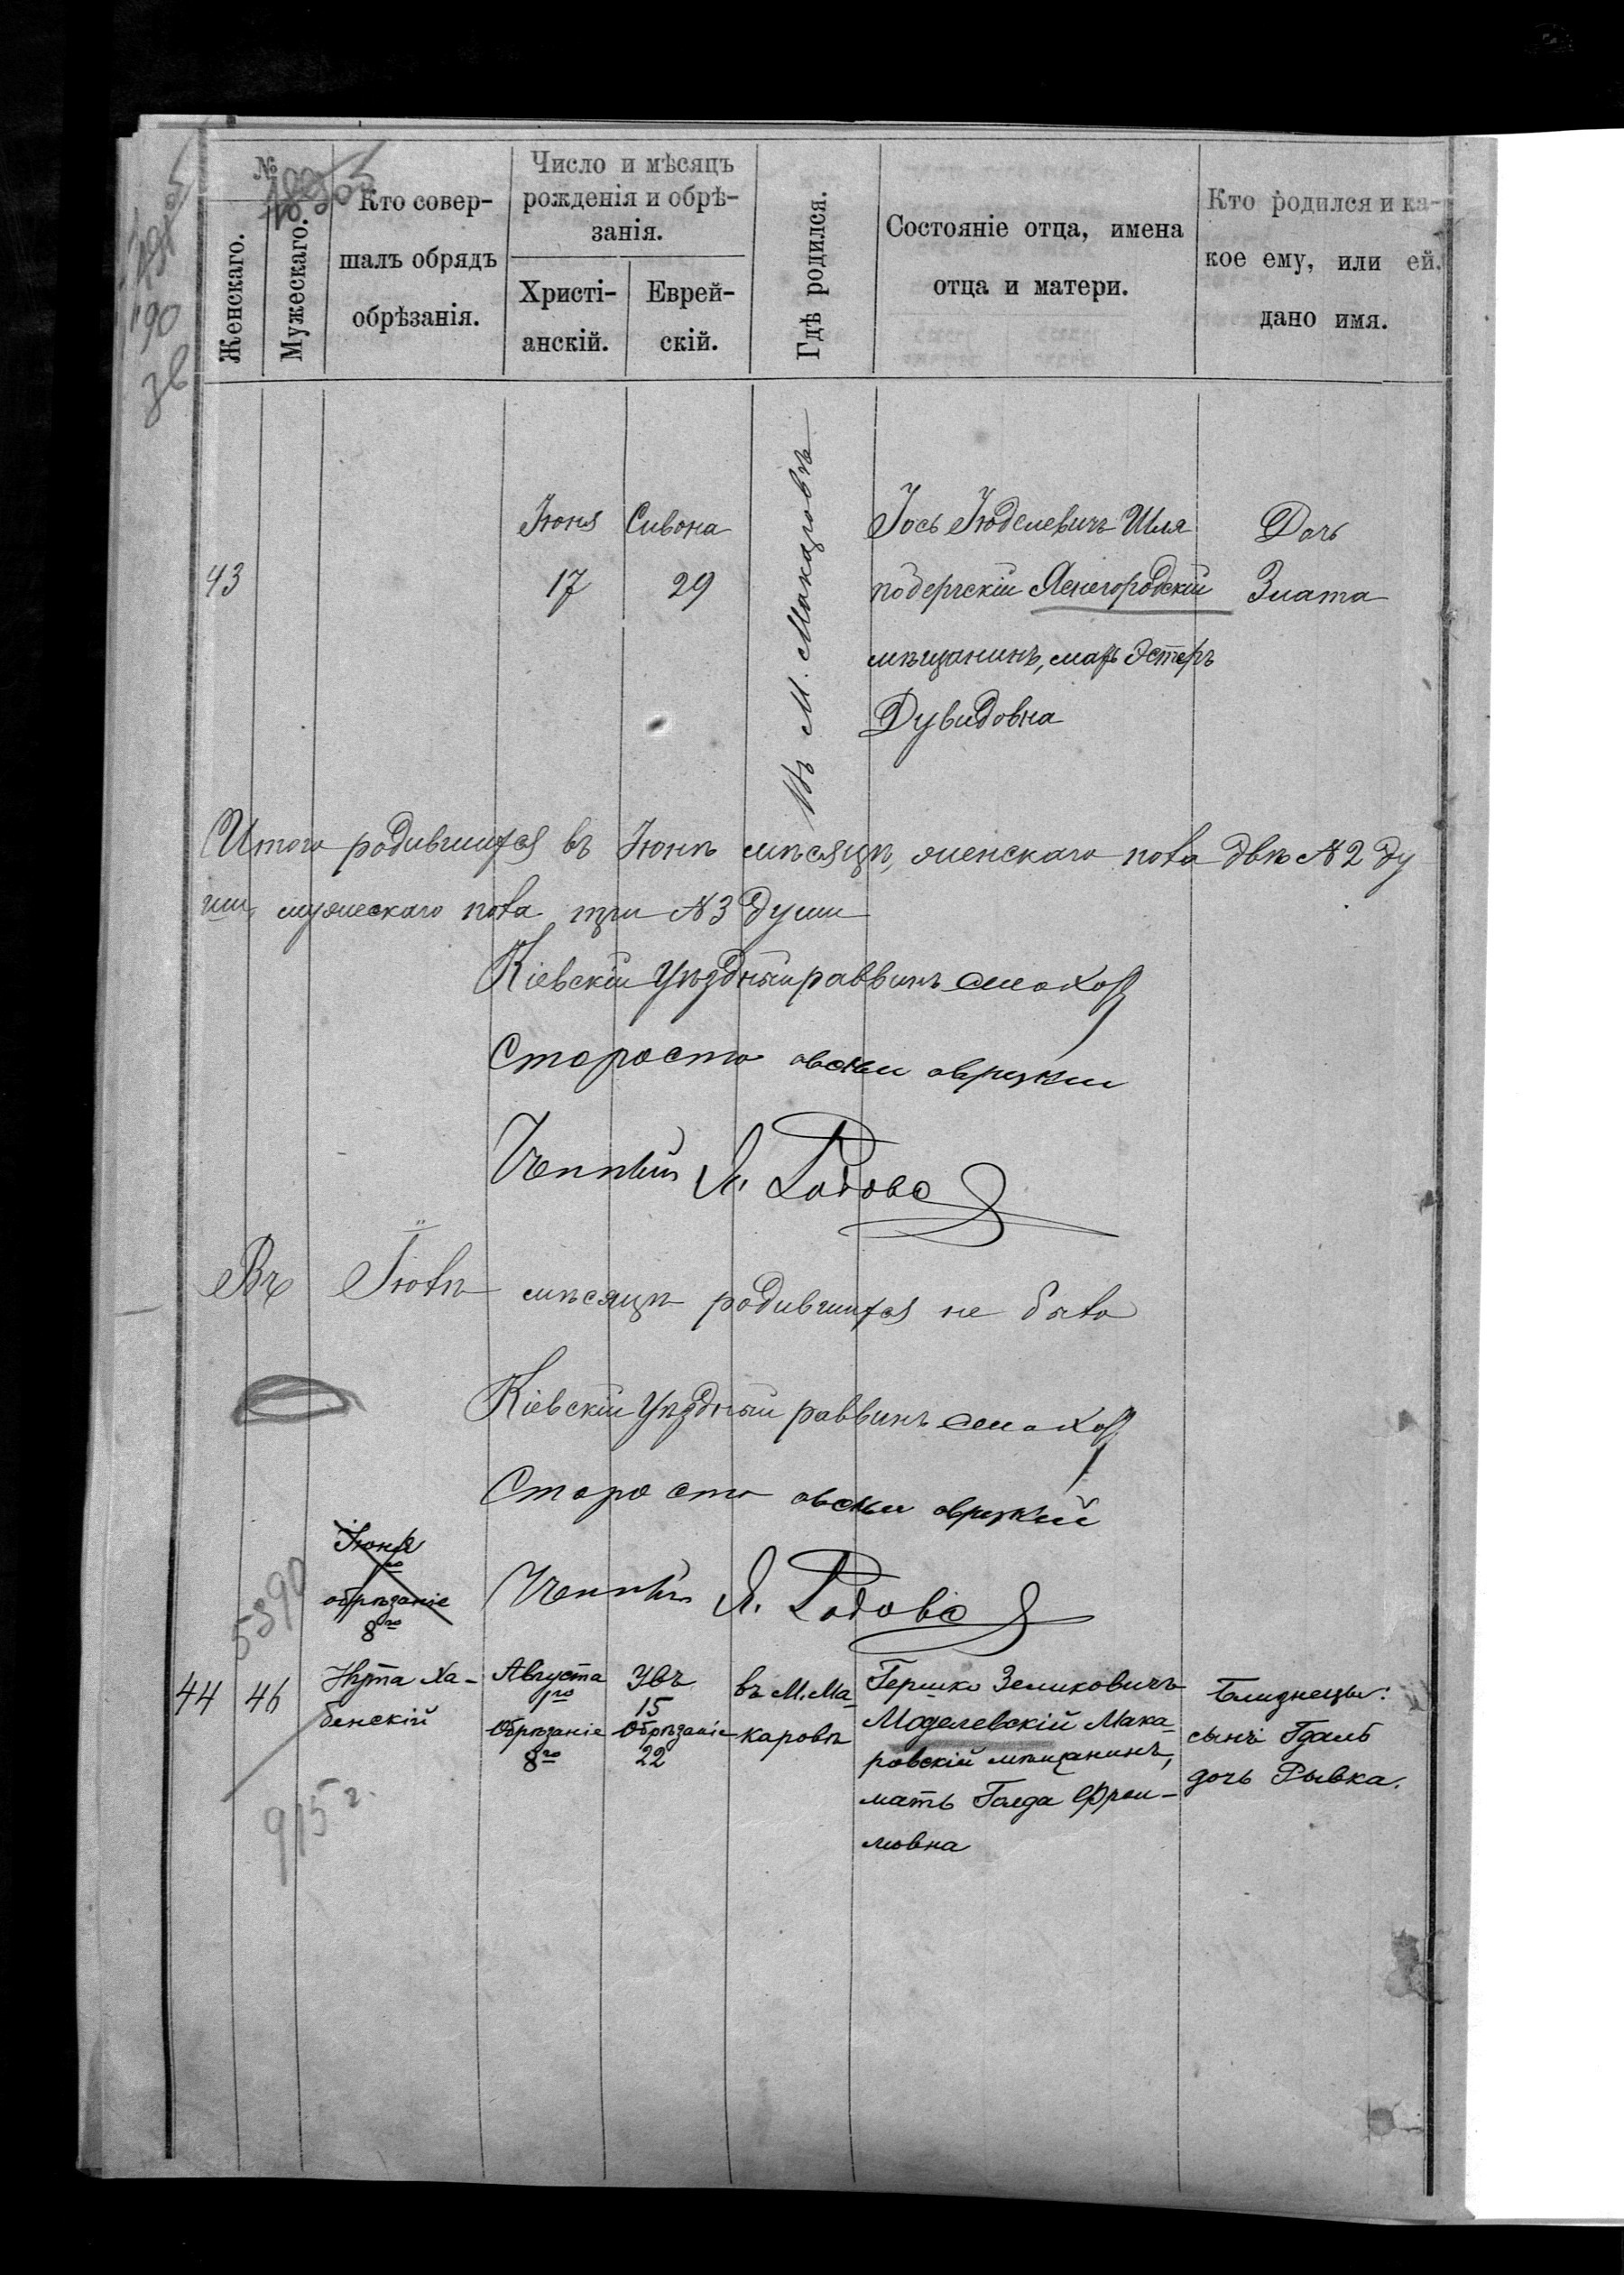 №
Женскаго.
Мужескаго.
Кто совер-
шалъ обрядъ
обрѣзанія.
Число и мѣсяцъ
рожденія и обрѣ-
занія.
Христі-
анскій.
Еврей-
скій.
Гдѣ родился.
Состояніе отца, имена
отца и матери.
Кто родился и ка-
кое ему, или ей.
дано имя.
43
Іюня
17
Сивона
29
Въ М. Макаровѣ
Іось Юделевичъ Шля
Ясногородскій
мѣщанинъ, мать Эстеръ
Дувидовна
Дочь
Злата
Итого родившихся въ Іюнѣ мѣсяцѣ, женскаго пола двѣ № 2 ду
ши, мужескаго пола три № 3 души
Кіевскій Уѣздный раввинъ
Староста
Въ Іюлѣ мѣсяцѣ родившихся не было
Кіевскій Уѣздный раввинъ
Староста
Іюня
обрѣзаніе
8го
5390
44
46
Нута Ха-
бенскій
Августа
1го
Обрѣзаніе
8го
Увъ
15
Обрѣзаніе
22
въ М. Ма-
каровѣ
Гершко Зеликовичъ
Моделевскій Мака-
ровскій мѣщанинъ,
мать Голда Фрои-
мовна
Близнецы:
сынъ Гдаль
дочь Рывка.
915 г.